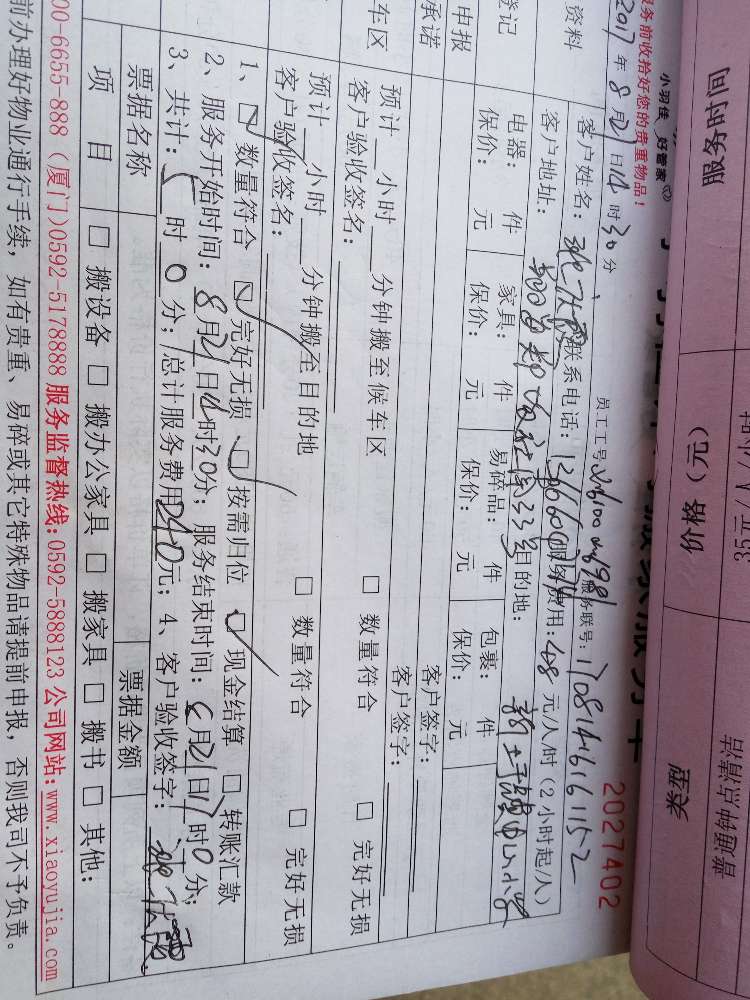 小羽佳 好管家
服务前收拾好您的贵重物品!
2027402
2017年8月21日14时30分
员工工号
服务联号:
资料
客户姓名:
联系电话:
费用:48元/人/时(2小时起/人)
客户地址:
目的地:
登记
电器: 件
家具: 件
易碎品: 件
包裹: 件
保价: 元
保价: 元
保价: 元
保价: 元
申报
承诺
客户签字:
客户签字:
车区
预计 小时 分钟搬至候车区
□ 数量符合
□ 完好无损
客户验收签名:
预计 小时 分钟搬至目的地
□ 数量符合
□ 完好无损
客户验收签名:
1、□ 数量符合 □ 完好无损 □ 按需归位 □ 现金结算 □ 转账汇款
2、服务开始时间:8月21日14时30分;服务结束时间:8月21日17时0分;
3、共计: 时0分;总计服务费用240元;4、客户验收签字:
票据名称
票据金额
项 目
□ 搬设备 □ 搬办公家具 □ 搬家具 □ 搬书 □ 其他:
00-6655-888(厦门)0592-5178888 服务监督热线:0592-5888123 公司网站:www.xiaoyujia.com
前办理好物业通行手续,如有贵重、易碎或其它特殊物品请提前申报,否则我司不予负责。
服务时间
价格(元)
类型
35元/人/小时
普通钟点清洁